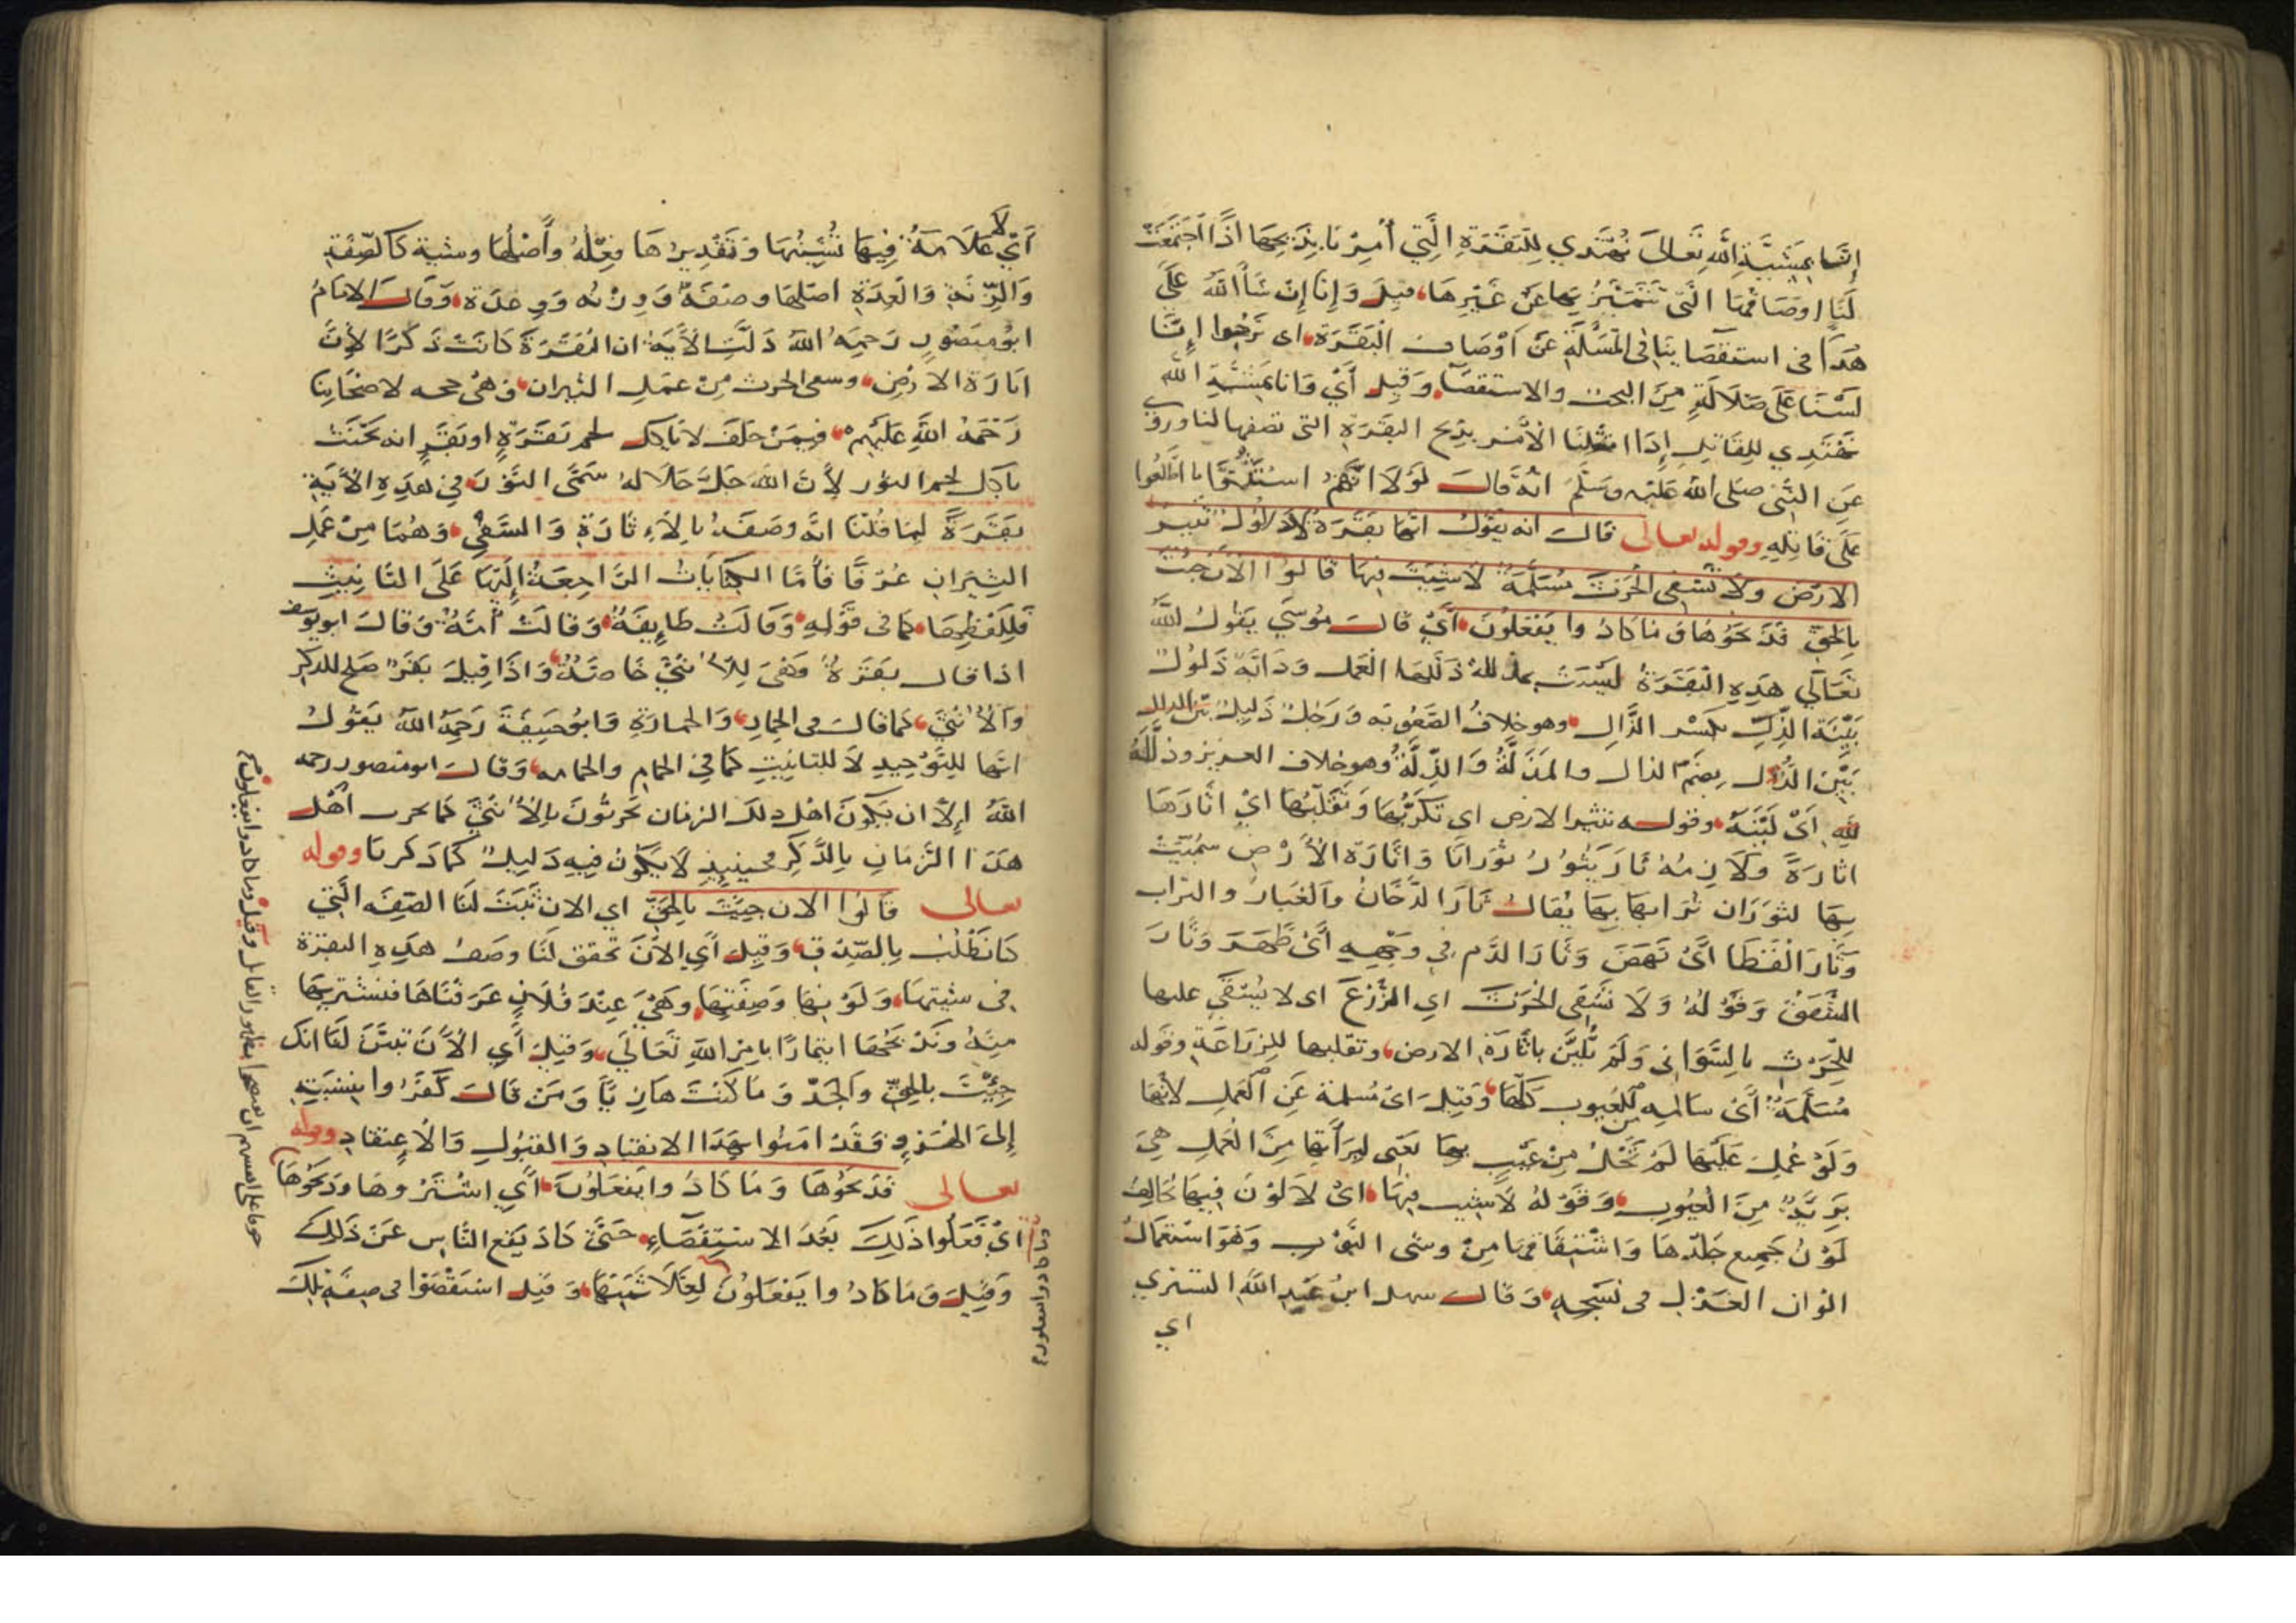 إنا بمشيّة الله تعالى نهتدي للبقرة التي أمرنا بذبحها اذا اجتمعت
لنا اوصافها التي تتميز بها عن غيرها، قيل وإنا إن شاء الله على
هدًا في استقصائنا في المسألة عن أوصاف البقرة، اى نرجوا إنّا
لسنا على ضلالة من البحث والاستقصاء، وقيل أي وانا بمشيّة الله
نهتدي للقاتل إذا امتثلنا الأمر بذبح البقرة التى تصفها لنا وروي
عن النبي صلى الله عليه وسلم انه قال لولا انهم استثنوا ما اطلعوا
على قاتله وقوله تعالى قال انه يقول انها بقرة لا ذلول تثير
الارض ولا تسقى الحرث مسلّمة لاشية فيها قالوا الآن جئت
بالحق فذبحوها وما كادوا يفعلون، أي قال موسى يقول الله
تعالى هذه البقرة ليست مذللة ذللها العمل ودابّة ذلول
بيّنة الذِّل بكسر الذال، وهو خلاف الصعوبه ورجل ذليل بين الذل
بضم الذال والمذلّة والذلّة وهو خلاف العزيز وذلّ
لله أي ليّنة، وقوله تثير الارض اى تكربها وتقلبها أي أثارها
اثارة ولازمه ثار يثور ثورانا وإثارة الأرض سمّيت
بها لثوران ترابها بها يقال ثار الدخان والغبار والتراب
وثار القطا أي نهض وثار الدم في وجهه أي ظهر وثار
الشفق وقوله ولا تسقى الحرث اي الزرع اى لا يستقى عليها
للحرث بالسوانى ولم تليّن باثارة الارض، وتقلبها للزراعة وقوله
مسلّمة أي سالمه من العيوب كلها، وقيل اى مسلمة عن العمل لأنها
ولو عمل عليها لم تخل من عيب بها يعنى لبرأتها من العمل هي
بريّة من العيوب، وقوله لاشية فيها، اي لا لون فيها يخالف
لون جميع جلدها واشتقاقها من وشى الثوب وهو استعمال
الوان الغزل في نسجه، وقال سهل ابن عبد الله التستري
اي
أي لا علامة فيها تُشينها وتقديرها فِعْلة وأصلها وشية كالصفة
والزنة والعدة اصلها وصفة ووزنه ووعدة، وقال الامام
ابو منصور رحمه الله دلّت الآية ان البقرة كانت ذكرًا لأنّ
اثارة الارض، وسقى الحرث من عمل الثيران، وهى حجه لاصحابنا
رحمة الله عليهم، فيمن حلف لا ياكل لحم بقرة او بقر انه يحنث
باكل لحم الثور لأن الله جل جلاله سمّى الثور في هذه الآية
بقرة لما قلنا انه وصفه بالإثارة والسقي، وهما من عمل
الثيران عرفًا فأمّا الكنايات الراجعة إليها على التانيث
فللفظها، كما في قوله، وقالت طايفة، وقالت أمّة، وقال ابو يوسف
اذا قال بقرة وهى للأنثى خاصّة، واذا قيل بقر صلح للذكر
والأنثى، كما قال فى الحمار، والحمارة وابو حنيفة رحمه الله يقول
انها للتوحيد لا للتانيث كما في الحمام والحمامه، وقال ابو منصور رحمه
الله إلا ان يكون اهل ذلك الزمان يحرثون بالأنثى كما يحرث أهل
هذا الزمان بالذكر فحينيذ لا يكون فيه دليل كما ذكرنا وقوله
تعالى قالوا الان جئت بالحق اي الان ثبتت لنا الصفه التي
كنا نطلب بالصدق، وقيل أي الآن تحقق لنا وصف هذه البقرة
في سنّيتها، ولونها وصفتها، وهي عند فلان عرفناها فنشتريها
منه ونذبحها ايتمارًا بامر الله تعالى، وقيل أي الآن تبيّن لنا انك
جئت بالحق والجدّ وما كنت هازيًا ومن قال كفروا بنسبته
إلى الهزو فقد امنوا بهذا الانقياد والقبول والاعتقاد وقوله
تعالى فذبحوها وما كادوا يفعلون، أي اشتروها وذبحوها
وما كادوا يفعلون
اي فعلوا ذلك بعد الاستقصاء، حتى كاد يقع الناس عن ذلك
وقيل وما كادوا يفعلون لغلاء ثمنها، وقيل استقصوا في صفة تلك
خوفا على انفسهم ان يفتضحوا بظهور القاتل وقيل وما كادوا يفعلون